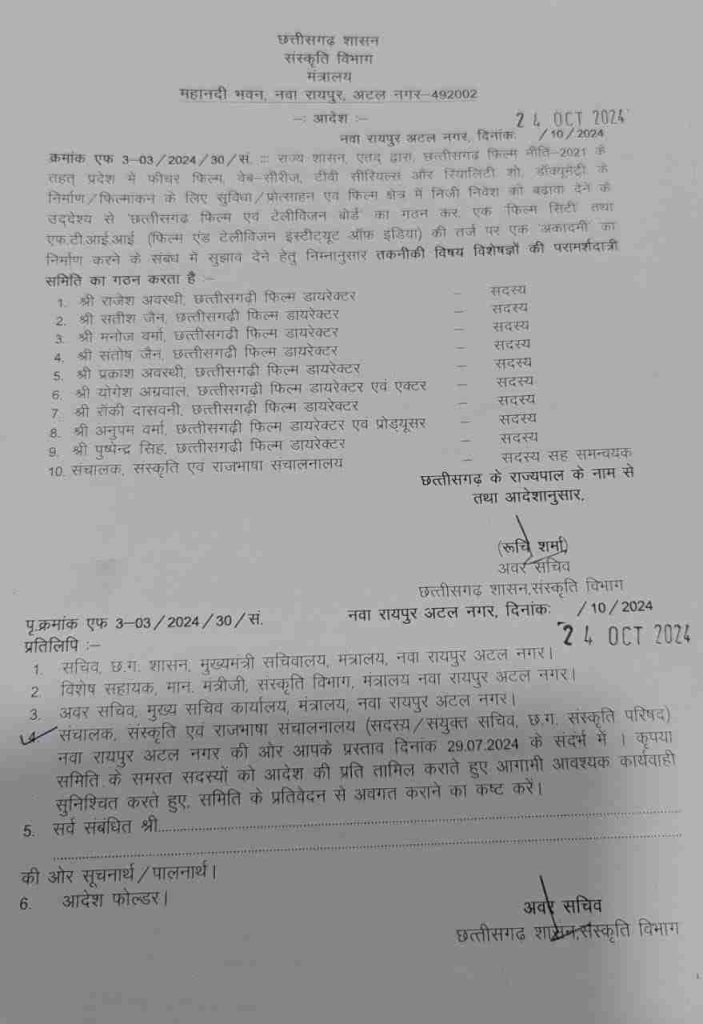 छत्तीसगढ़ शासन
संस्कृति विभाग
मंत्रालय
महानदी भवन, नवा रायपुर, अटल नगर-492002
-: आदेश :-
24 OCT 2024
नवा रायपुर अटल नगर, दिनांक: /10/2024
क्रमांक एफ 3-03/2024/30/सं. :: राज्य शासन, एतद् द्वारा, छत्तीसगढ़ फिल्म नीति-2021 के
तहत् प्रदेश में फीचर फिल्म, वेब-सीरीज, टीवी सीरियल्स और रियालिटी शो, डॉक्यूमेंट्री के
निर्माण/फिल्मांकन के लिए सुविधा/प्रोत्साहन एवं फिल्म क्षेत्र में निजी निवेश को बढ़ावा देने के
उद्देश्य से 'छत्तीसगढ़ फिल्म एवं टेलीविजन बोर्ड' का गठन कर, एक 'फिल्म सिटी' तथा
एफ.टी.आई.आई. (फिल्म एंड टेलीविजन इंस्टीट्यूट ऑफ इंडिया) की तर्ज पर एक 'अकादमी' का
निर्माण करने के संबंध में सुझाव देने हेतु निम्नानुसार तकनीकी विषय विशेषज्ञों की परामर्शदात्री
समिति का गठन करता है :-
1. श्री राजेश अवस्थी, छत्तीसगढ़ी फिल्म डायरेक्टर – सदस्य
2. श्री सतीश जैन, छत्तीसगढ़ी फिल्म डायरेक्टर – सदस्य
3. श्री मनोज वर्मा, छत्तीसगढ़ी फिल्म डायरेक्टर – सदस्य
4. श्री संतोष जैन, छत्तीसगढ़ी फिल्म डायरेक्टर – सदस्य
5. श्री प्रकाश अवस्थी, छत्तीसगढ़ी फिल्म डायरेक्टर – सदस्य
6. श्री योगेश अग्रवाल, छत्तीसगढ़ी फिल्म डायरेक्टर एवं एक्टर – सदस्य
7. श्री रॉकी दासवनी, छत्तीसगढ़ी फिल्म डायरेक्टर – सदस्य
8. श्री अनुपम वर्मा, छत्तीसगढ़ी फिल्म डायरेक्टर एवं प्रोड्यूसर – सदस्य
9. श्री पुष्पेन्द्र सिंह, छत्तीसगढ़ी फिल्म डायरेक्टर – सदस्य
10. संचालक, संस्कृति एवं राजभाषा संचालनालय – सदस्य सह समन्वयक
छत्तीसगढ़ के राज्यपाल के नाम से
तथा आदेशानुसार,
(रूचि शर्मा)
अवर सचिव
छत्तीसगढ़ शासन,संस्कृति विभाग
पृ.क्रमांक एफ 3-03/2024/30/सं. नवा रायपुर अटल नगर, दिनांक: /10/2024
प्रतिलिपि :-
24 OCT 2024
1. सचिव, छ.ग. शासन, मुख्यमंत्री सचिवालय, मंत्रालय, नवा रायपुर अटल नगर।
2. विशेष सहायक, मान. मंत्रीजी, संस्कृति विभाग, मंत्रालय नवा रायपुर अटल नगर।
3. अवर सचिव, मुख्य सचिव कार्यालय, मंत्रालय, नवा रायपुर अटल नगर।
4. संचालक, संस्कृति एवं राजभाषा संचालनालय (सदस्य/संयुक्त सचिव, छ.ग. संस्कृति परिषद)
नवा रायपुर अटल नगर की ओर आपके प्रस्ताव दिनांक 29.07.2024 के संदर्भ में । कृपया
समिति के समस्त सदस्यों को आदेश की प्रति तामिल कराते हुए आगामी आवश्यक कार्यवाही
सुनिश्चित करते हुए, समिति के प्रतिवेदन से अवगत कराने का कष्ट करें।
5. सर्व संबंधित श्री......................................................
......................................................
की ओर सूचनार्थ/पालनार्थ।
6. आदेश फोल्डर।
अवर सचिव
छत्तीसगढ़ शासन,संस्कृति विभाग